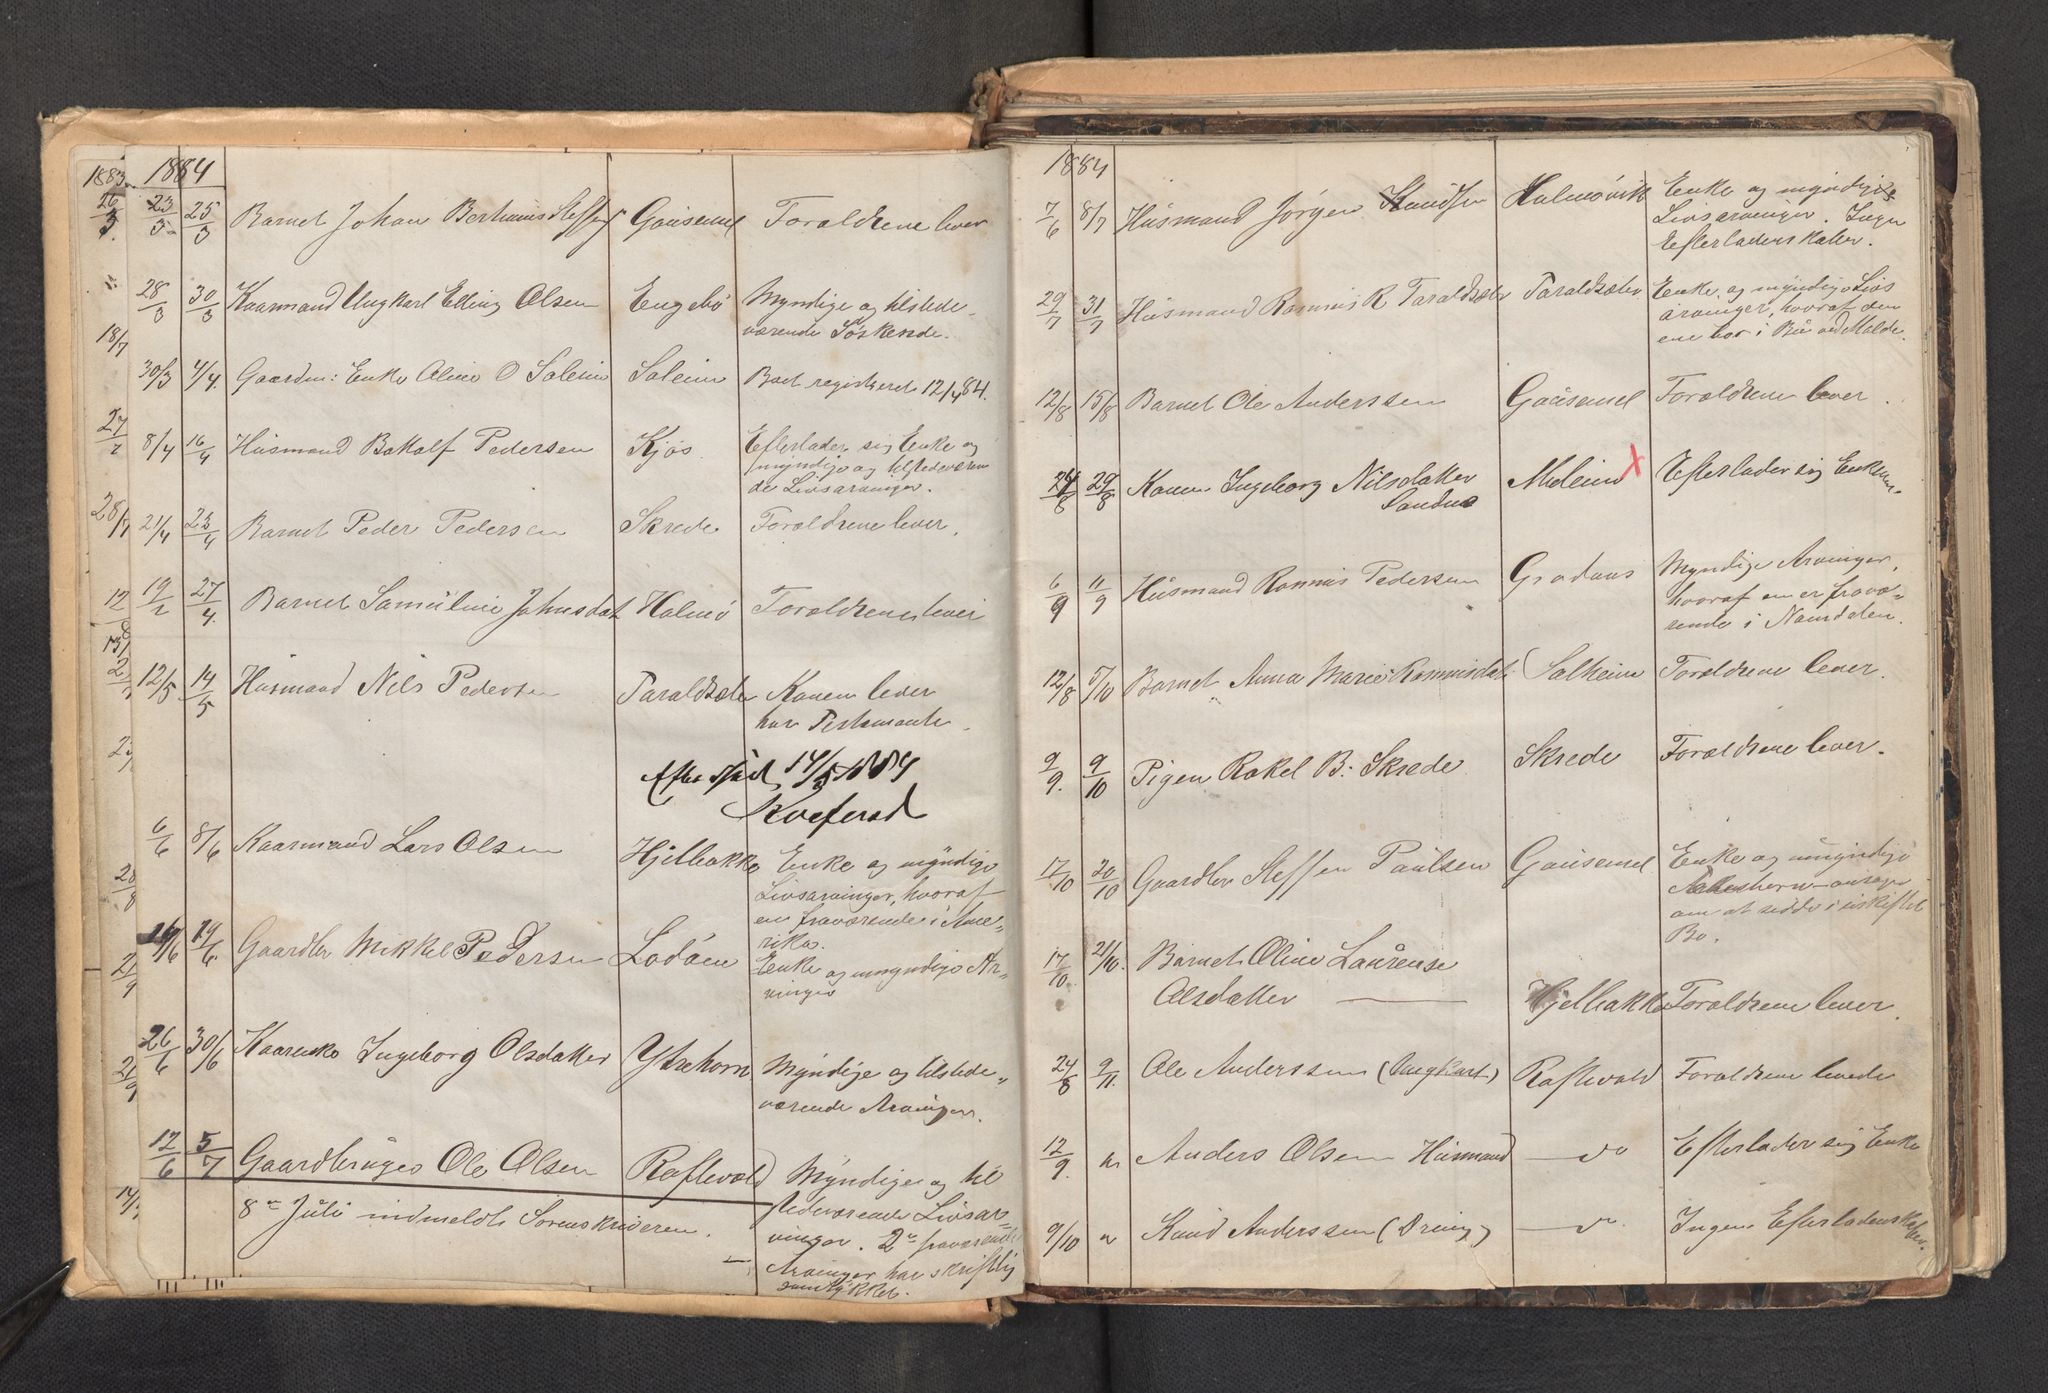 1883
1884
26/3 23/3 25/3 Barnet Johan Berthinus Steffs Gausemel Forældrene lever
28/3 30/3 Kaarmand Ungkarl Elling Olsen Engebø Myndige og tilstede-
værende Søskende.
18/7
30/3 4/4. Gaardm: Enke Oline O Soleim Soleim Boet registreret 12/4 84.
27/7 8/4 16/4 Husmand Botholf Pedersen Kjøs Efterlader sig Enke og
myndige og tilstedeværen
de Livsarvinger.
28/7 21/4 23/4 Barnet Peder Pedersen Skrede Forældrene lever.
12 19/2 27/4. Barnet Samuline Johnsdat Holmø Forældrene lever
12/5 14/5 Husmand Nils Pedersen Taraldsæter Konen lever
har Testamente.
Efterseet 14/5 1884
Koefoed
6/6 8/6 Kaarmand Lars Olsen Hjelbakke Enke og myndige
Livsarvinger, hvoraf
en fraværende i Ame-
rika.
16/6 19/6. Gaardbr Mikkel Pedersen Lødøen Enke og myndige Ar-
vinger
26/6 30/6 Kaarenke Ingeborg Olsdatter Ytrehorn Myndige og tilstede-
værende Arvinger.
12/6 5/7 Gaardbruger Ole Olsen Raftevold Myndige og til
stedeværende Livsar-
8de Juli indmeldt Sorenskriveren.
vinger. 2de fraværende
Arvinger har skriftlig
samtykket.
1884
7/6 8/7 Husmand Jørgen Knudsen Holmøvik Enke og myndige
Livsarvinger. Ingen
Efterladenskaber.
29/7 31/7 Husmand Rasmus R Taraldsæter Taraldsæter Enke og myndige Livs
arvinger, hvoraf den
ene bor i Bu ved Molde.
12/8 15/8 Barnet Ole Anderssen Gausemel Forældrene lever.
24/8 29/8 Konen Ingeborg Nilsdatter Muleim X Efterlader sig Enkem.
Sandnæ
6/9 11/9 Husmand Rasmus Pedersen Grodaas Myndige Arvinger,
hvoraf en er fravæ-
rende i Namdalen.
12/8 5/10 Barnet Anna Marie Rasmusdat. Solheim Forældrene lever.
9/9. 9/10 Pigen Rakel B. Skrede Skrede Forældrene lever.
17/10 20/10 Gaardbr Steffen Paulsen Gausemel Enke og myndige
om at sidde i uskiftet
Bo.
17/10 21/10. Barnet Oline Laurense
Olsdatter — Hjelbakke Forældrene lever.
24/8 9/11. Ole Anderssen (Ungkarl) Raftevold Forældrene levede
12/9. " Anders Olsen Husmand — do Efterlader sig Enke
9/10 " Knud Anderssen (Dreng) — do Ingen Efterladenskaber.